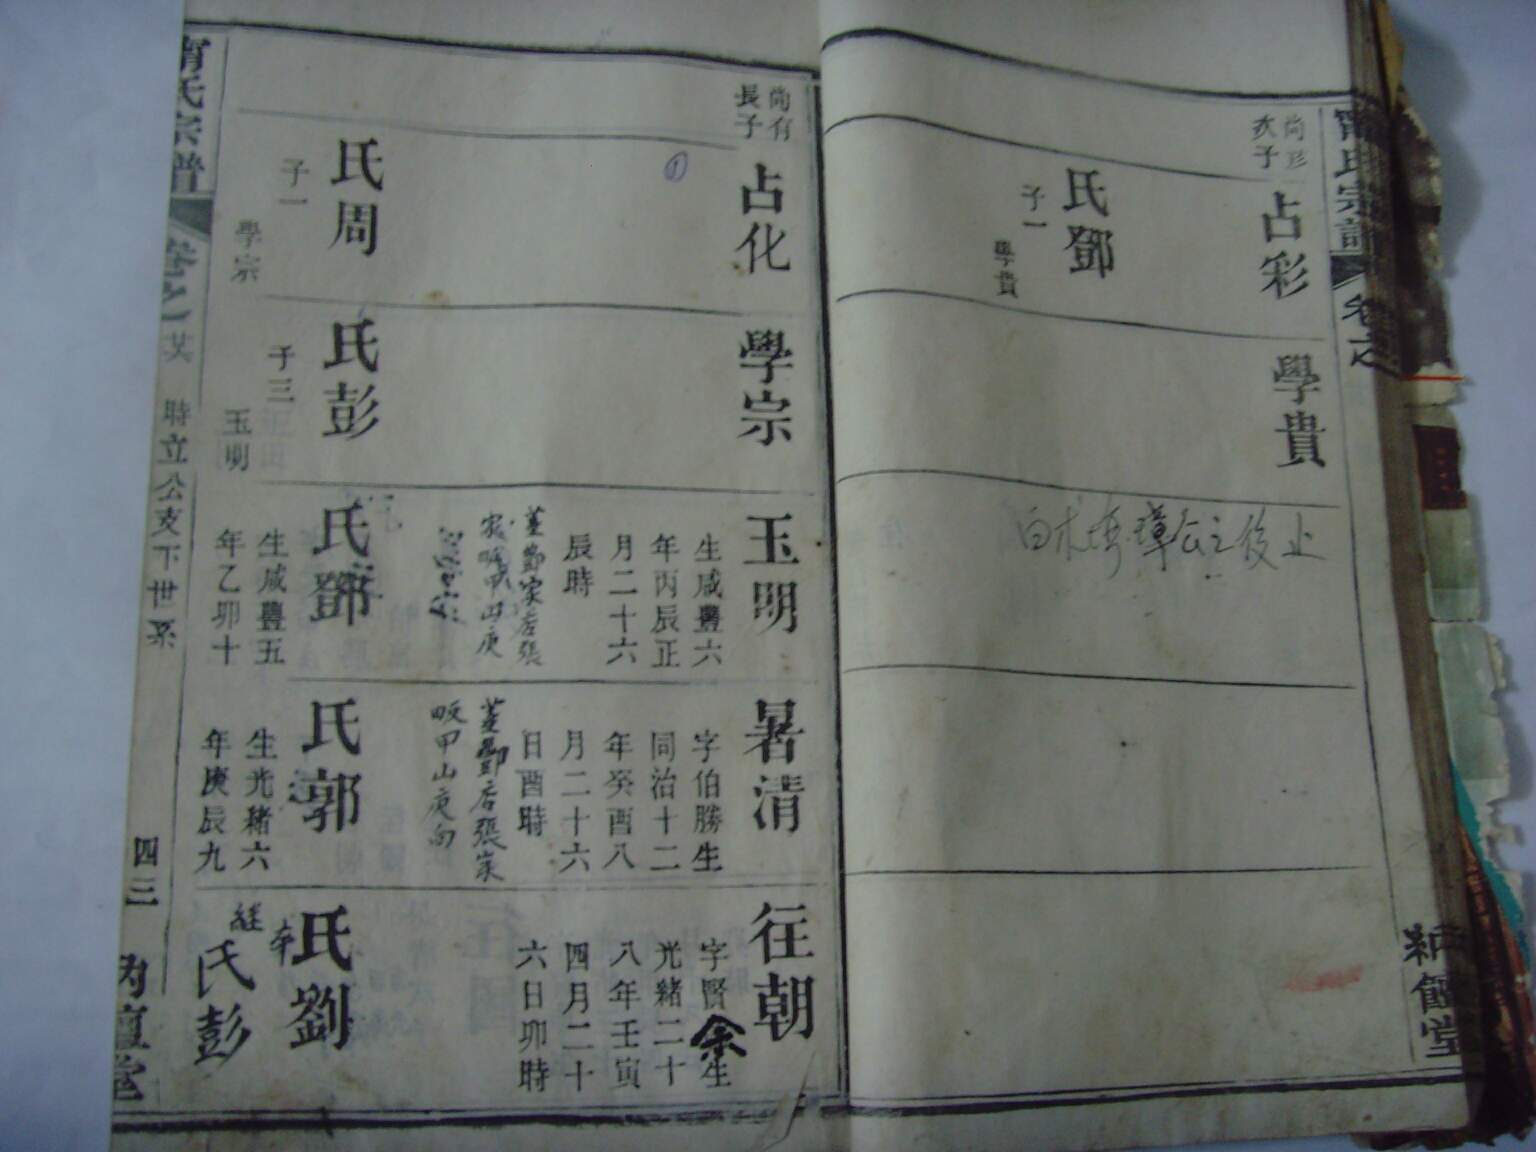 甯氏宗譜
卷之
尚彩
次子
占彩
氏鄧
子一
學貴
學貴
公之後止
尚有
長子
占化
氏周
子一
學宗
學宗
氏彭
子三
玉明
玉明
生咸豐六
年丙辰正
月二十六
辰時
葬鄧家店張
家畈甲山庚
氏鄧
生咸豐五
年乙卯十
暑清
字伯勝生
同治十二
年癸酉八
月二十六
日酉時
葬鄧店張家
畈甲山庚向
氏郭
生光緒六
年庚辰九
往朝
字賢余生
光緒二十
八年壬寅
四月二十
六日卯時
氏劉
繼
氏彭
甯氏宗譜
卷之
時立公支下世系
四三